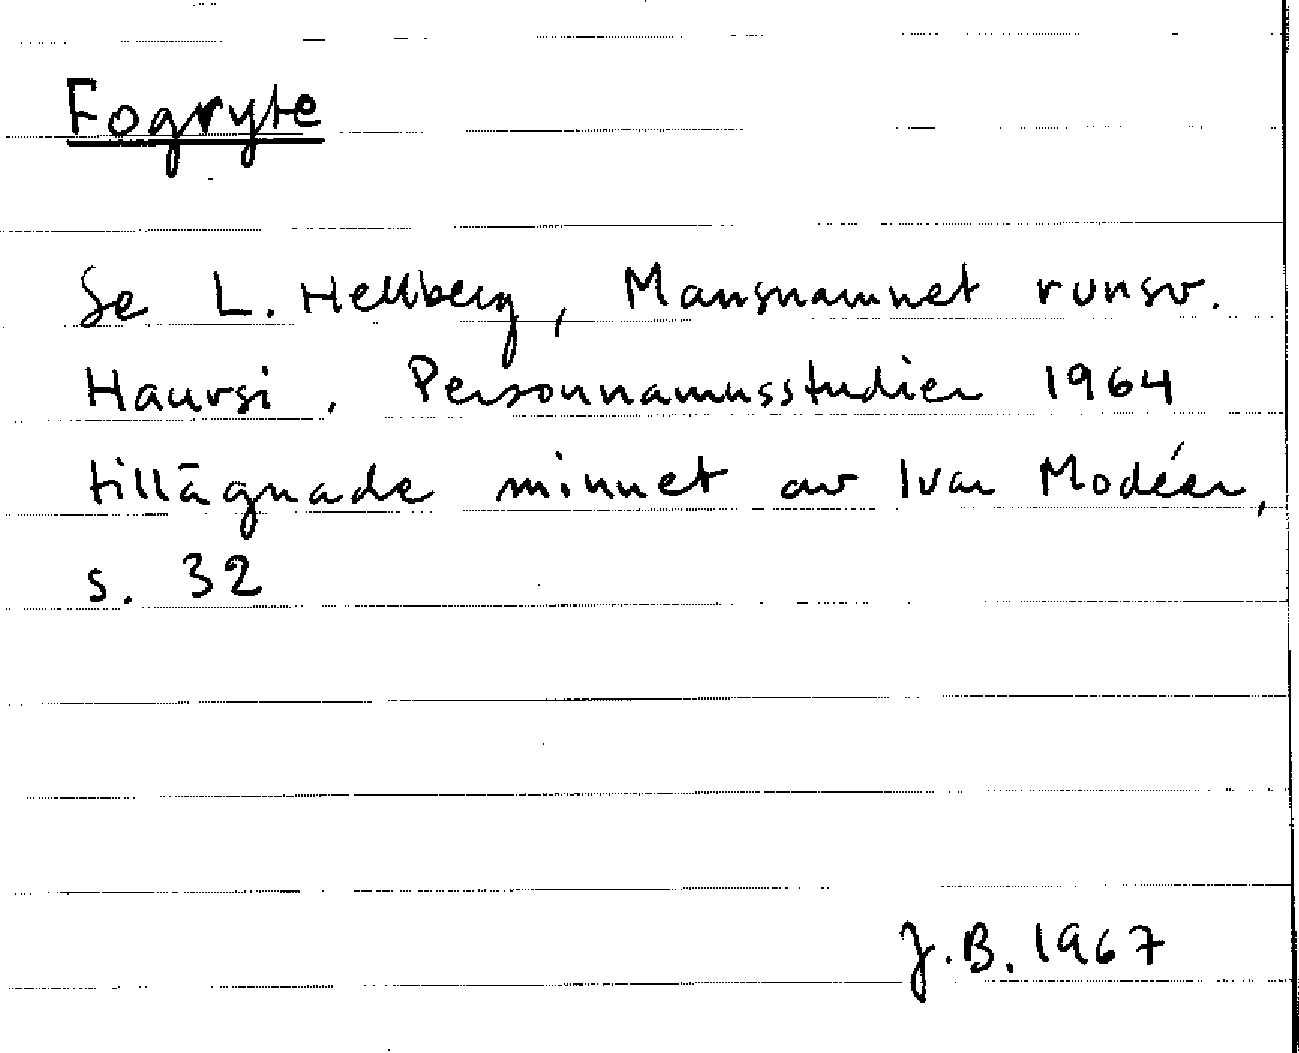 Fogryte
Se L. Hellberg, Mansnamnet runsv.
Haursi. Personnamnsstudier 1964
tillägnade minnet av Ivar Modéer,
s. 32
J.B. 1967